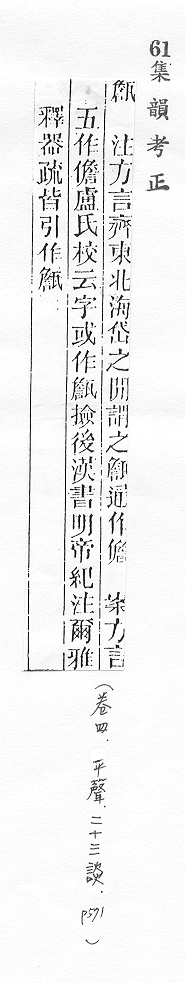 61集韻考正
甔　注方言齊東北海岱之閒謂之甔通作儋　案方言
五作儋盧氏校云字或作甔撿後漢書明帝紀注爾雅
釋器疏皆引作甔
（卷四．平聲．二十三談．p571）